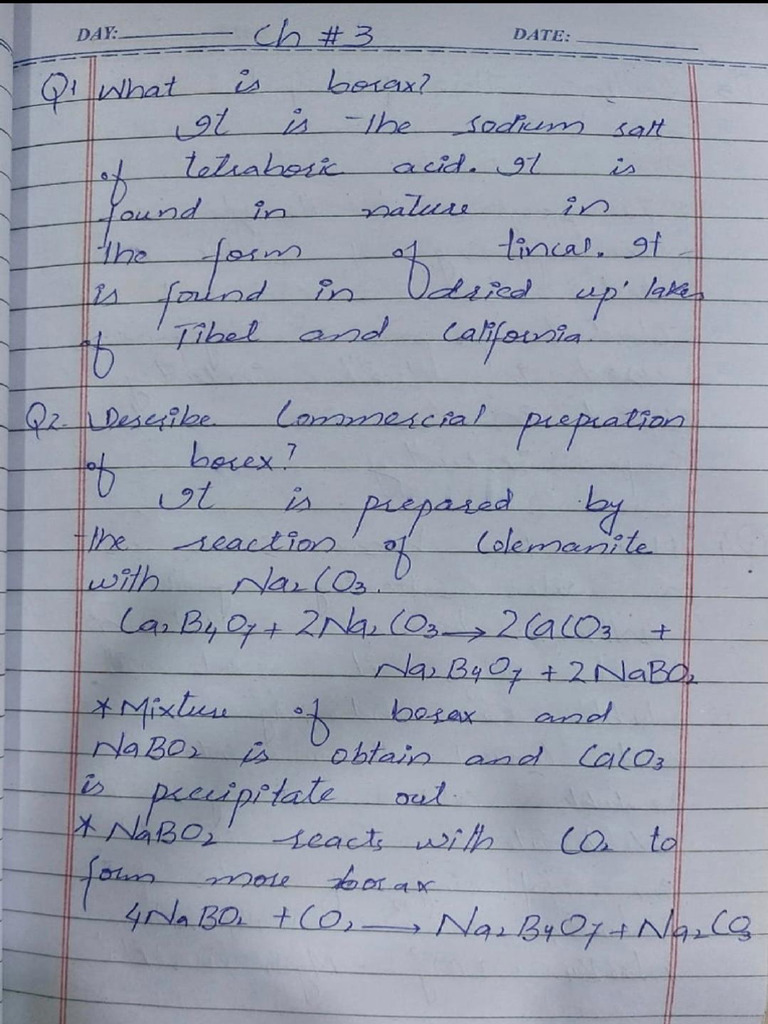 DAY: Ch # 3 DATE:
Q1 What is borax?
It is the sodium salt
of tetraboric acid. It is
found in nature in
the form of tincal. It
is found in dried up lakes
of Tibet and California.
Q2. Describe Commercial prepration
of borex?
It is prepared by
the reaction of Colemanite
with Na₂CO₃.
Ca₂B₄O₇ + 2Na₂CO₃ → 2CaCO₃ +
Na₂B₄O₇ + 2NaBO₂
* Mixture of borax and
NaBO₂ is obtain and CaCO₃
is precipitate out.
* NaBO₂ reacts with CO₂ to
form more borax
4NaBO₂ + CO₂ → Na₂B₄O₇ + Na₂CO₃